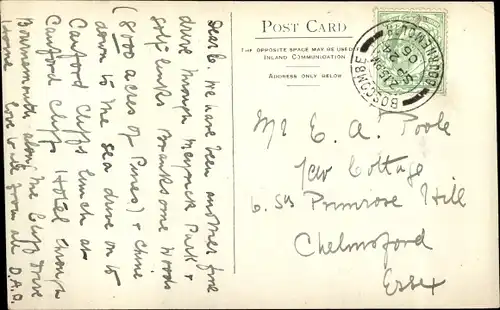 Dear C. We have been another fine
drive through Meyrick Park &
golf links Branksome Woods
(8000 acres of Pines) & Chine
down to the sea drive on to
Canford Cliffs lunch at
Canford Cliffs Hotel through
Bournemouth along the Cliff Drive
Home Love to all from all D.A.O.
POST CARD
THE OPPOSITE SPACE MAY BE USED
INLAND COMMUNICATION
ADDRESS ONLY BELOW
BOSCOMBE
BOURNEMOUTH
Mr E. A. Poole
Yew Cottage
6. Sth Primrose Hill
Chelmsford
Essex